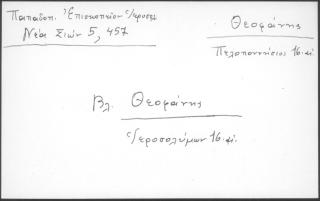 Παπαδοπ. Ἐπισκοπεῖον Ἱεροσολ.
Νέα Σιών 5, 457
Θεοφάνης
Πελοποννήσιος 16. αἰ.
Βλ. Θεοφάνης
Ἱεροσολύμων 16. αἰ.